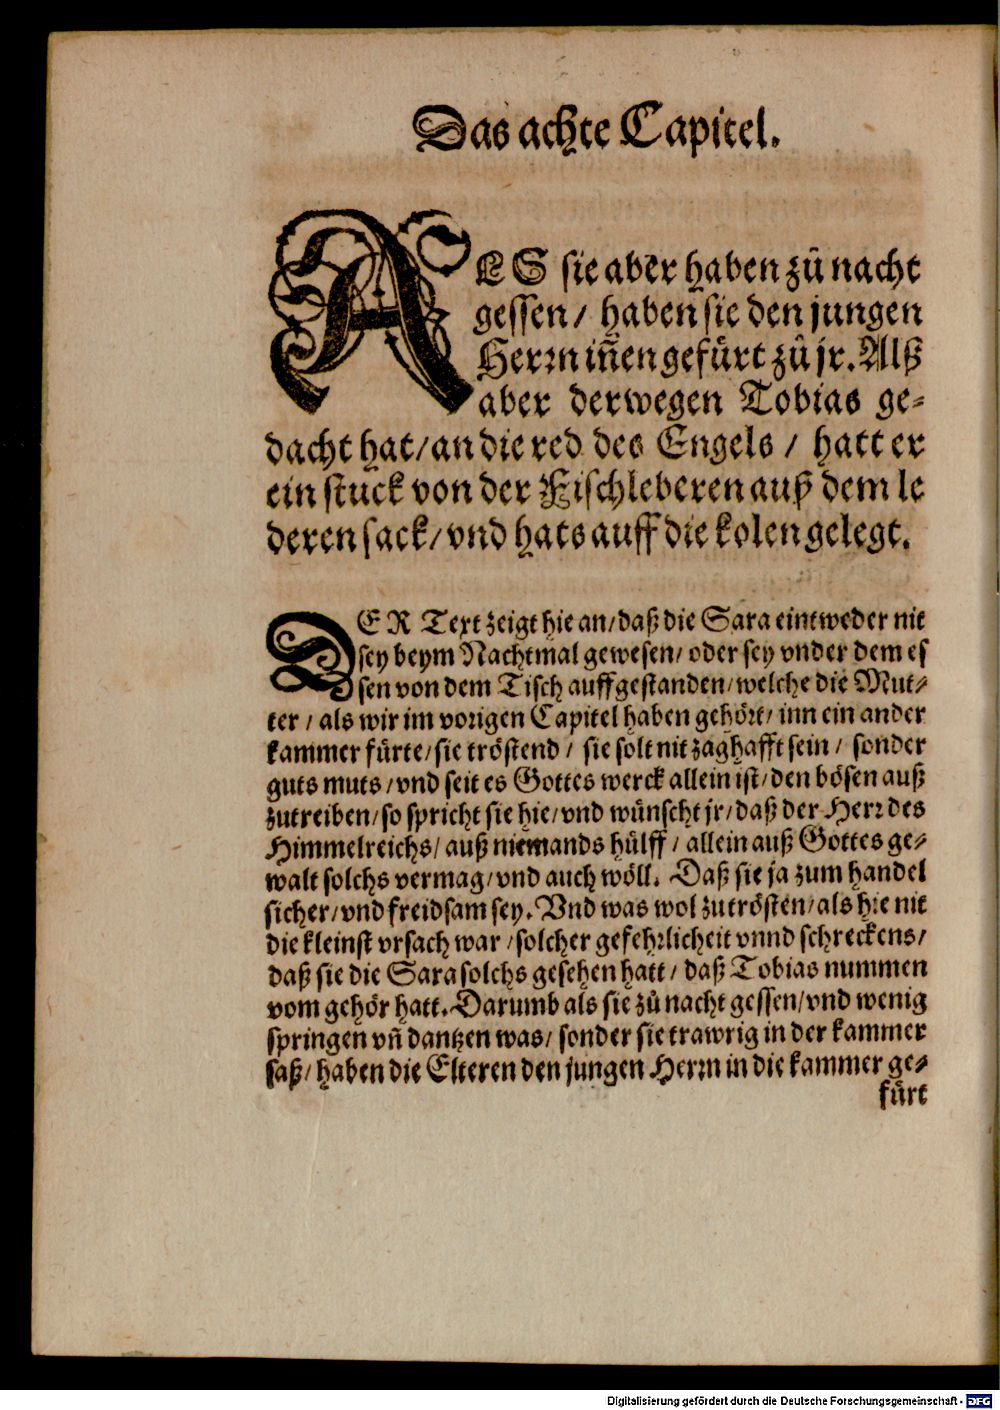 Das achte Capitel.
ALS sie aber haben zů nacht
gessen / haben sie den jungen
Herrn iñen gefürt zů jr. Alß
aber derwegen Tobias ge-
dacht hat / an die red des Engels / hatt er
ein stuck von der Fischleberen auß dem le
deren sack / vnd hats auff die kolen gelegt.
DER Text zeigt hie an / daß die Sara eintweder nit
sey beym Nachtmal gewesen / oder sey vnder dem es
sen von dem Tisch auffgestanden / welche die Mut-
ter / als wir im vorigen Capitel haben gehört / inn ein ander
kammer fürte / sie tröstend / sie solt nit zaghafft sein / sonder
guts muts / vnd seit es Gottes werck allein ist / den bösen auß
zutreiben / so spricht sie hie / vnd wünscht jr / daß der Herr des
Himmelreichs / auß niemands hülff / allein auß Gottes ge-
walt solchs vermag / vnd auch wöll. Daß sie ja zum handel
sicher / vnd freidsam sey. Vnd was wol zutrösten / als hie nit
die kleinst vrsach war / solcher gefehrlicheit vnnd schreckens /
daß sie die Sara solchs gesehen hatt / daß Tobias nummen
vom gehör hatt. Darumb als sie zů nacht gessen / vnd wenig
springen vñ dantzen was / sonder sie trawrig in der kammer
saß / haben die Elteren den jungen Herrn in die kammer ge-
fürt
Digitalisierung gefördert durch die Deutsche Forschungsgemeinschaft - DFG